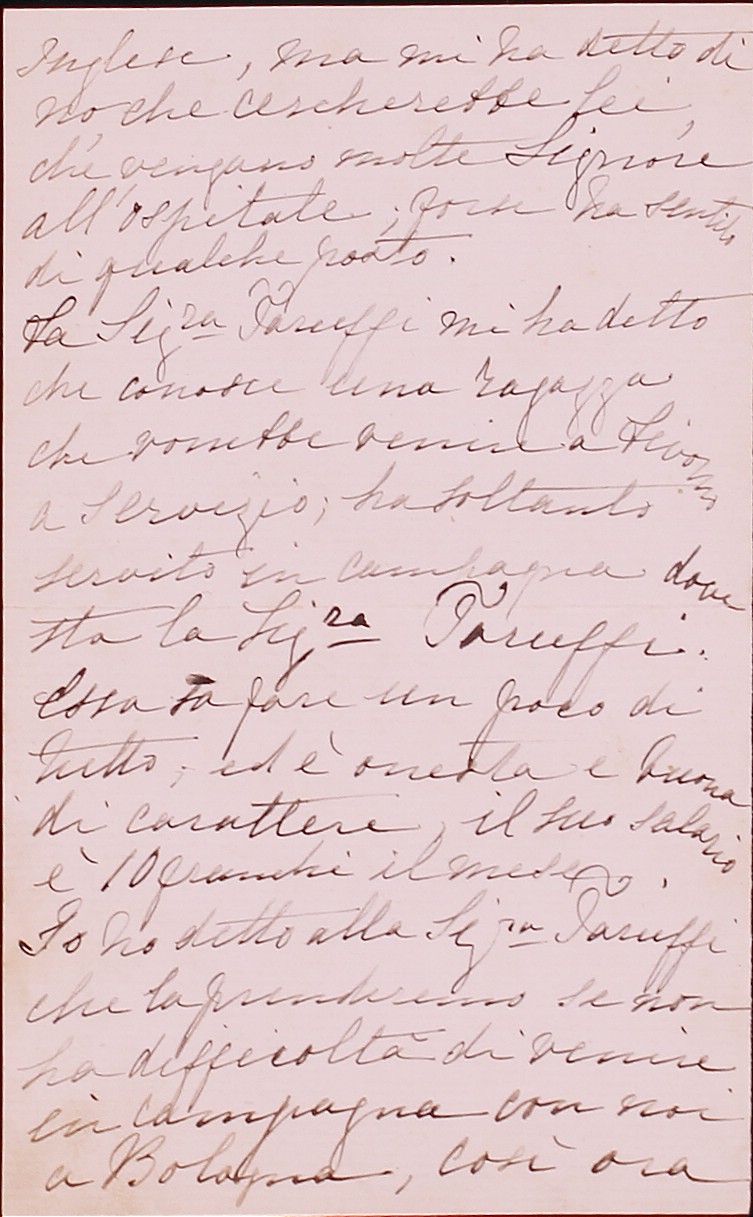 Inglese, ma mi ha detto di
no, che cercherebbe lei,
chè vengano molte Signore
all'ospitale; forse ha sentito
di qualche posto.
La Sig.ra Taruffi mi ha detto
che conosce una ragazza
che vorrebbe venire a Livorno
a servizio; ha soltanto
servito in campagna dove
sta la Sig.ra Taruffi.
Essa sa fare un poco di
tutto; ed è onesta e buona
di carattere, il suo salario
è 10 franchi il mese.
Io ho detto alla Sig.ra Taruffi
che la prenderemo se non
ha difficoltà di venire
in campagna con noi
a Bologna, così ora